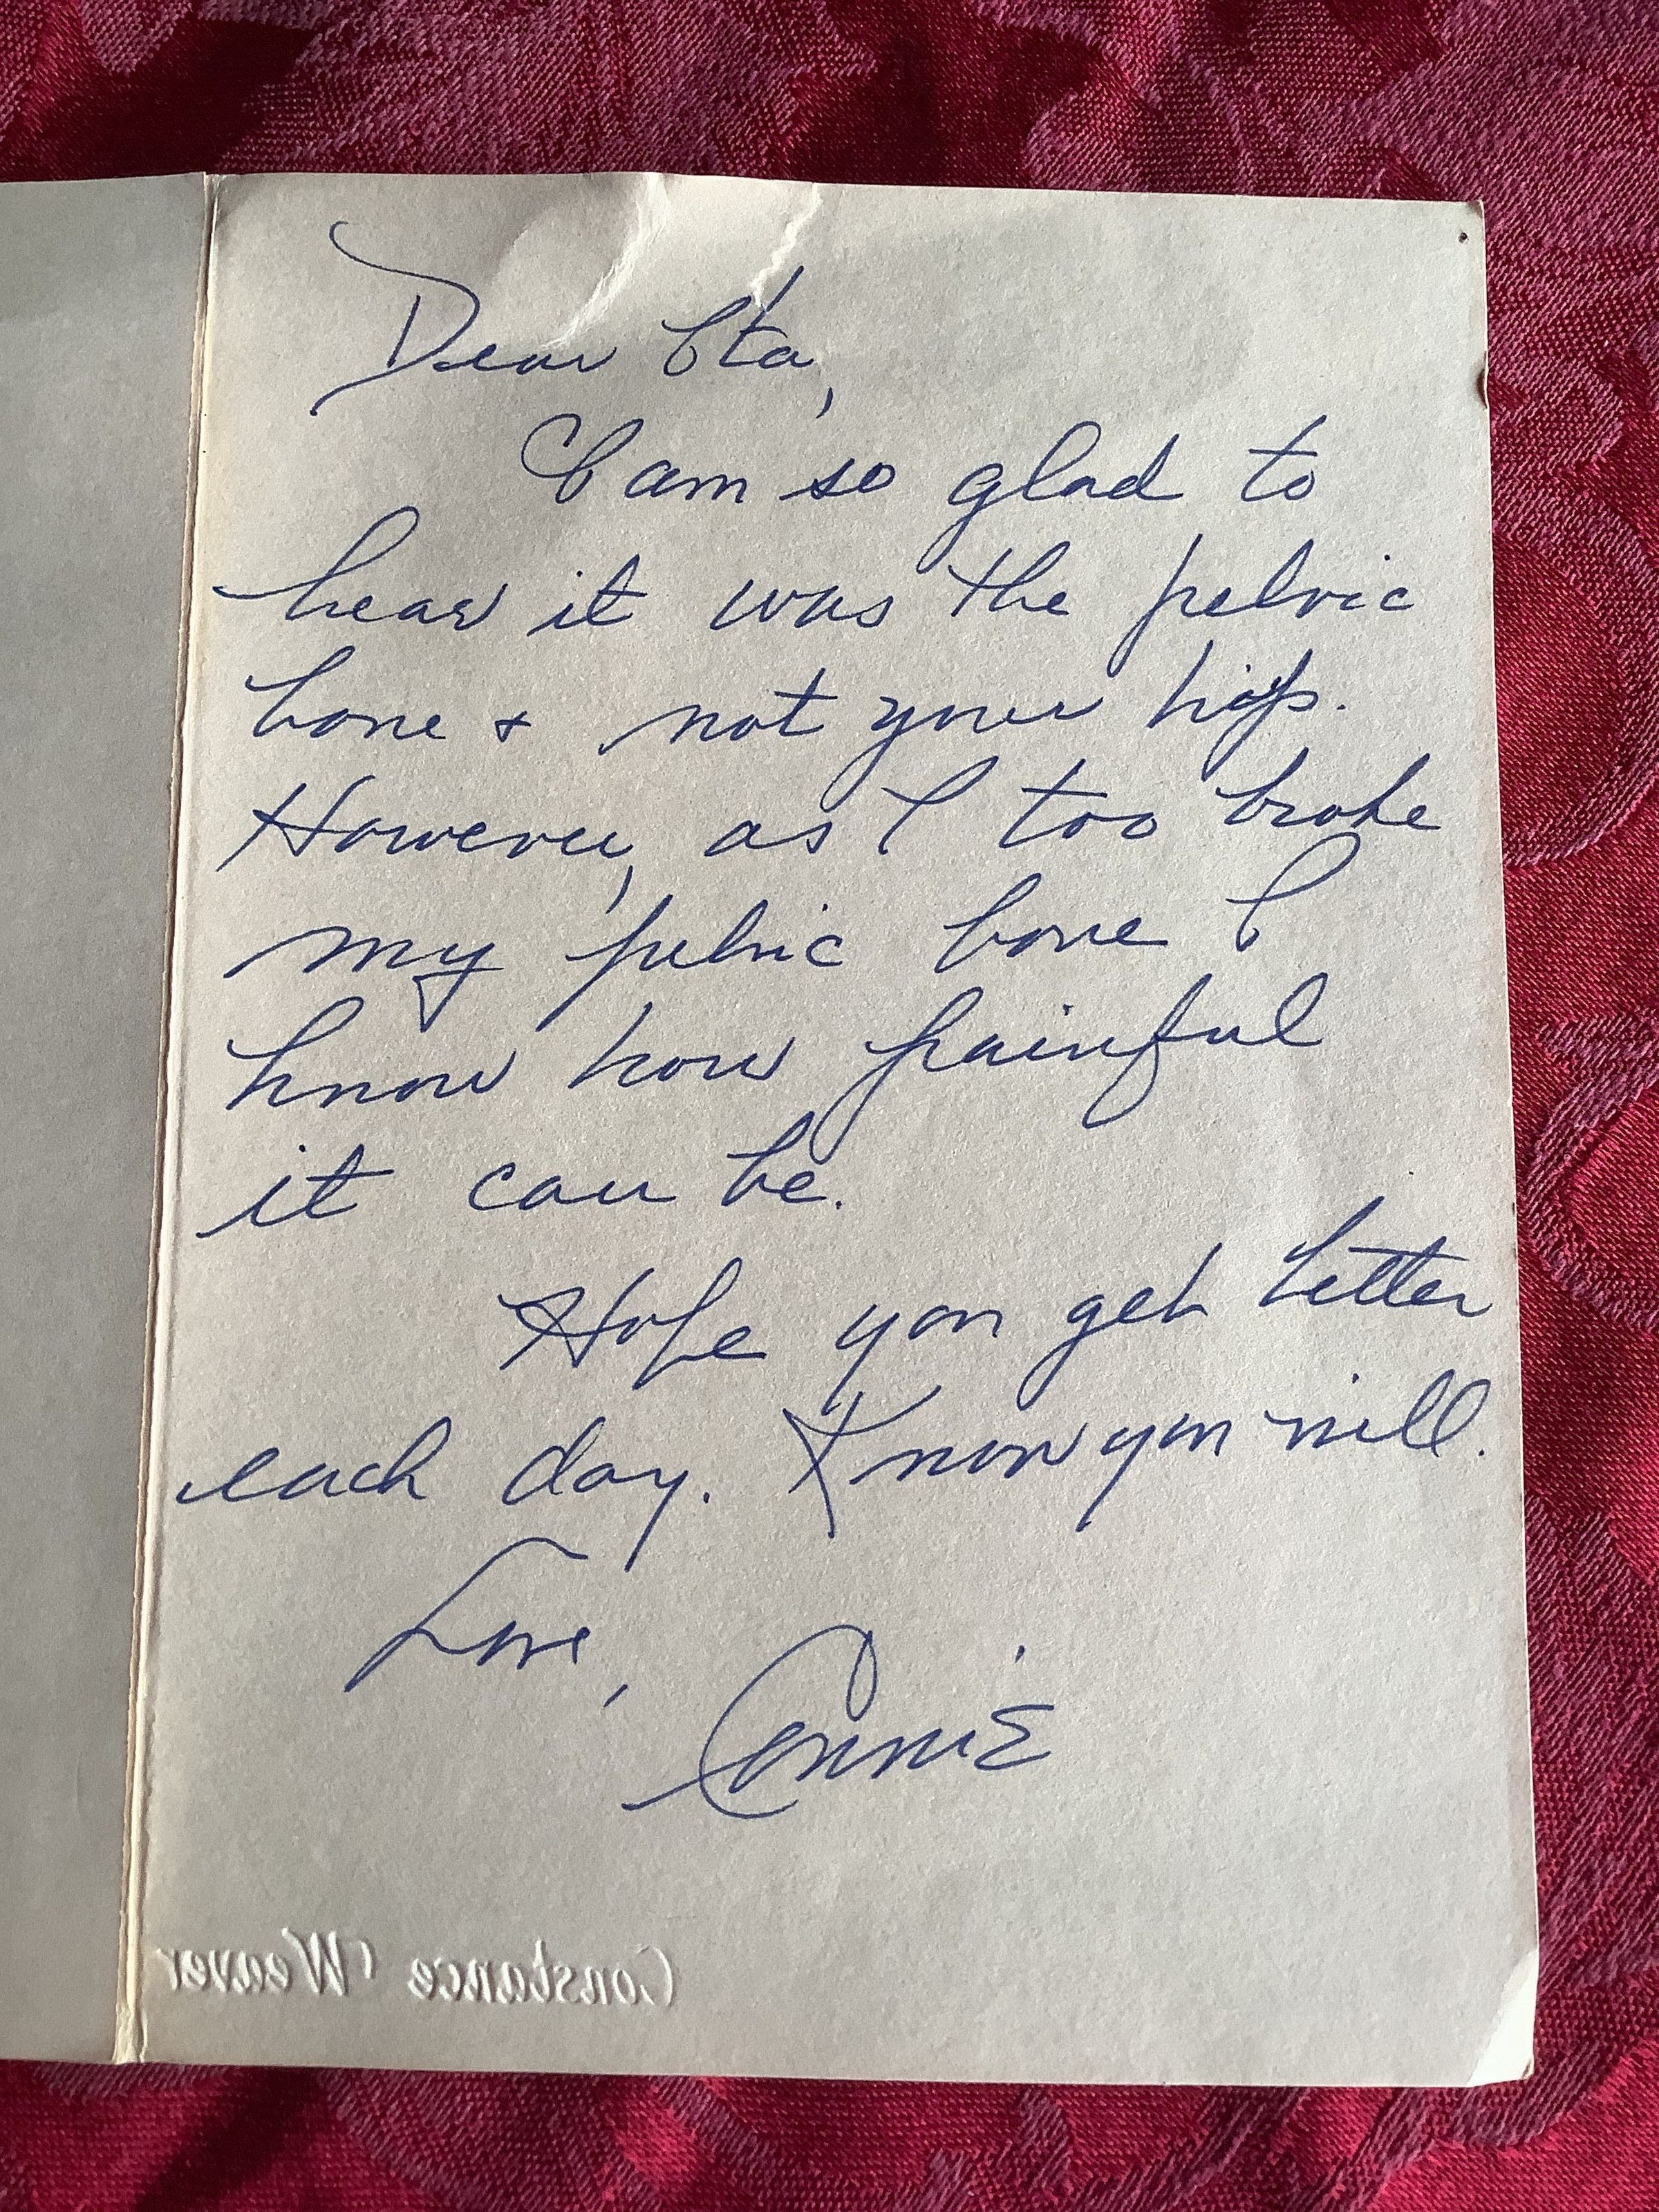 Dear Ita,
I am so glad to
hear it was the pelvic
bone & not your hip.
However, as I too broke
my pelvic bone I
know how painful
it can be.
Hope you get better
each day. Know you will.
Love,
Connie
Constance Weaver